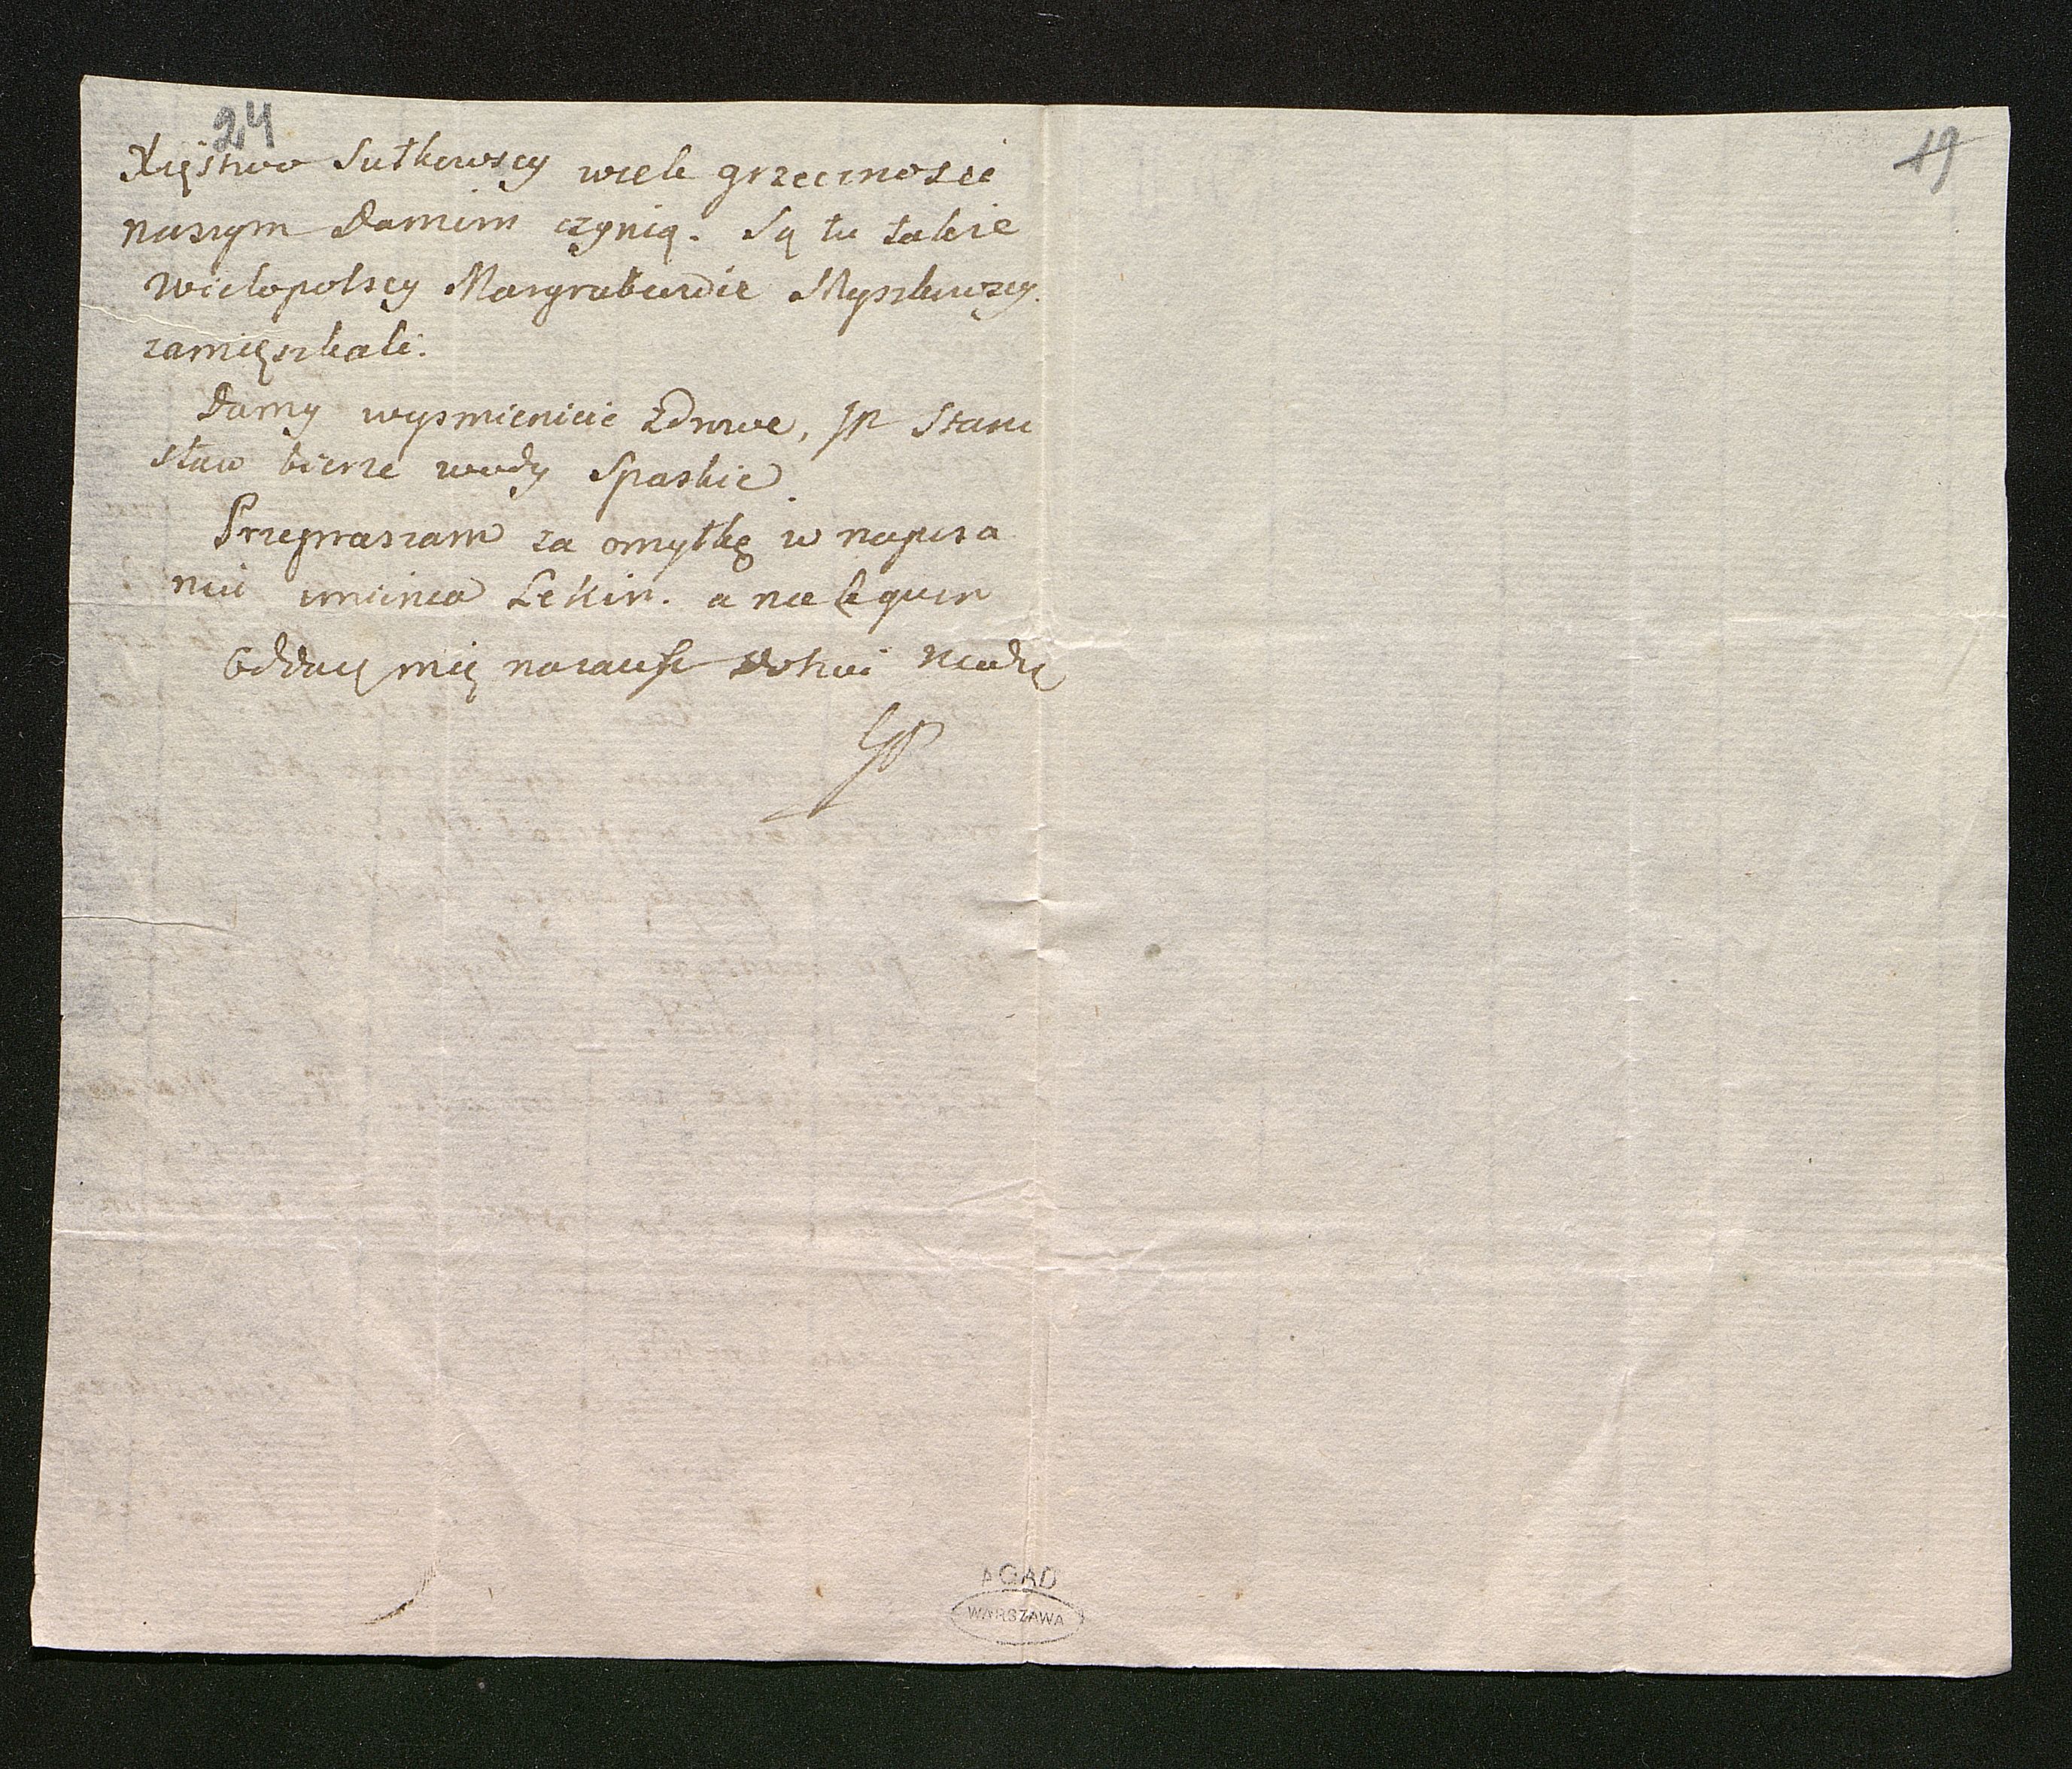 24
19
Xięstwo Sułkowscy wiele grzecznosci
naszym Damim czynią. Są tu takie
Wielopolscy Margrabowie Myszkowscy
zamięszkali.
Damy wysmienicie zdrowe, JP Stani
sław bierze wody Spaskie.
Przepraszam za omyłkę w napisa
niu imienia Lekin. a nie lequin
Oddaię mię
SP
AGAD
WARSZAWA